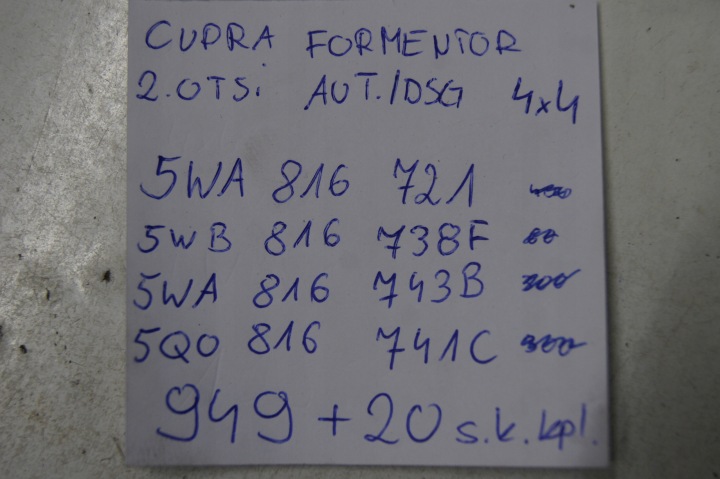 CUPRA FORMENTOR
2.0TSi AUT./DSG 4x4
5WA 816 721
5WB 816 738F
5WA 816 743B
5Q0 816 741C
949 + 20 s.k. kpl.